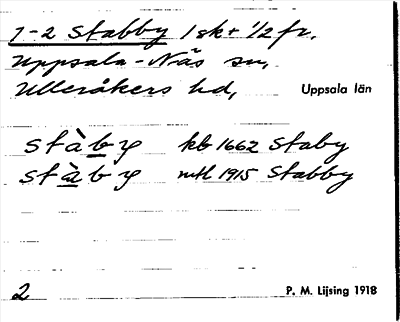 1-2 Stabby 1 sk+ 1/2 fr.
Uppsala-Näs sn,
Ulleråkers hd, Uppsala län
stàby kb 1662 Staby
stàby mtl 1915 Stabby
2 P. M. Lijsing 1918